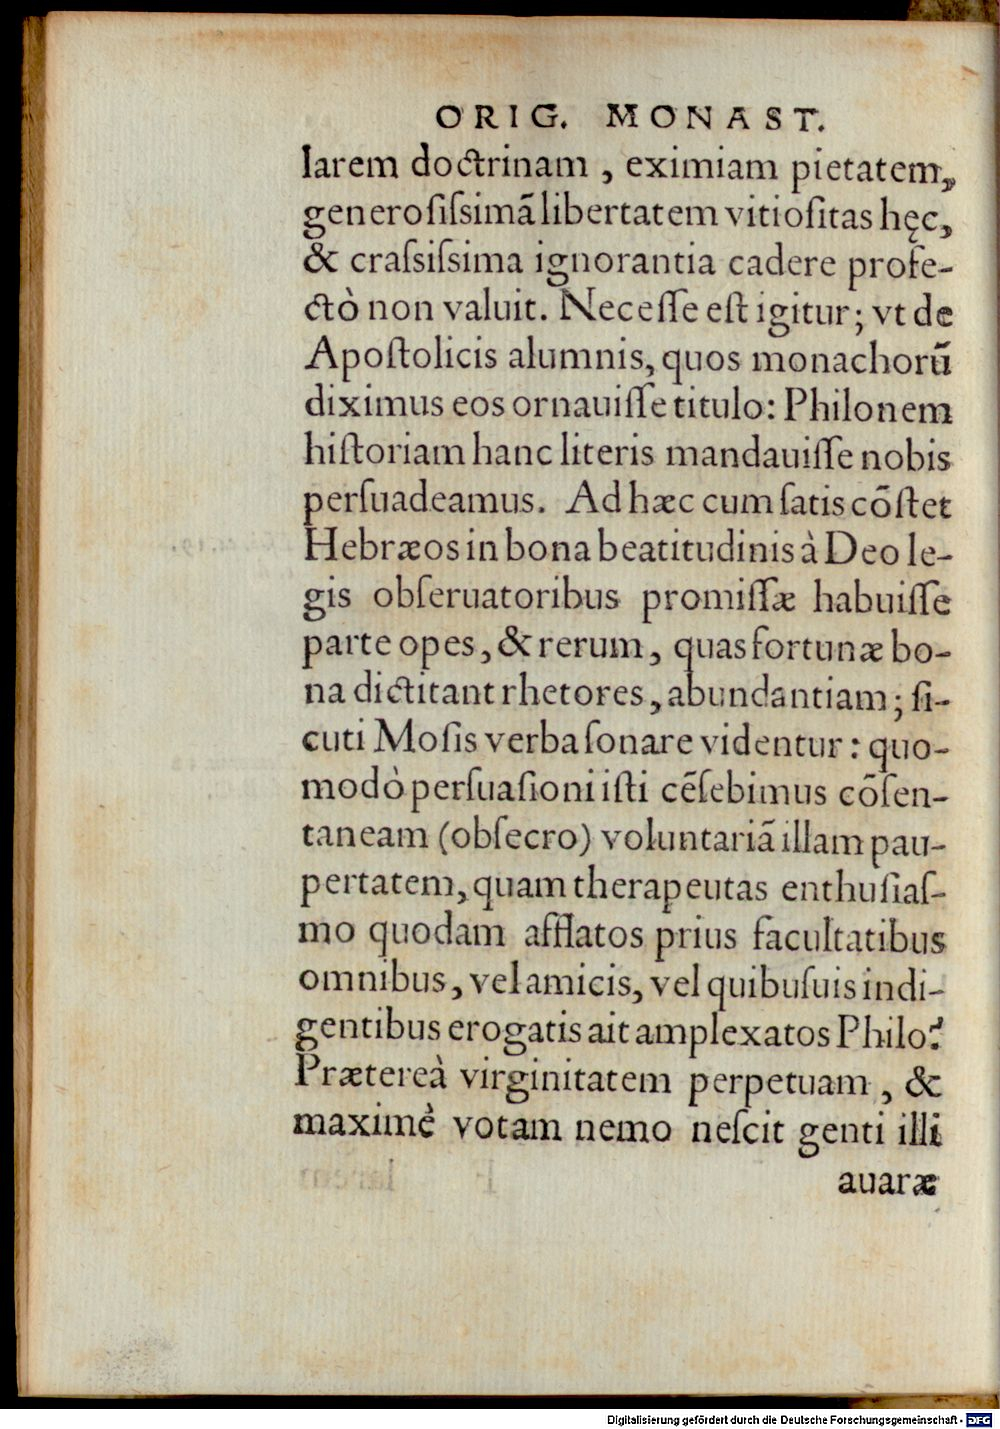 ORIG. MONAST.
larem doctrinam , eximiam pietatem,
generoſiſsimā libertatem vitioſitas hęc,
& craſsiſsima ignorantia cadere profe-
ctò non valuit. Neceſſe eſt igitur; vt de
Apoſtolicis alumnis, quos monachorū
diximus eos ornauiſſe titulo: Philonem
hiſtoriam hanc literis mandauiſſe nobis
perſuadeamus. Ad hæc cum ſatis cōſtet
Hebræos in bona beatitudinis à Deo le-
gis obſeruatoribus promiſſæ habuiſſe
parte opes, & rerum, quas fortunæ bo-
na dictitant rhetores, abundantiam; ſi-
cuti Moſis verba ſonare videntur: quo-
modò perſuaſioni iſti cēſebimus cōſen-
taneam (obſecro) voluntariā illam pau-
pertatem, quam therapeutas enthuſiaſ-
mo quodam afflatos prius facultatibus
omnibus, vel amicis, vel quibuſuis indi-
gentibus erogatis ait amplexatos Philo?
Prætereà virginitatem perpetuam , &
maximè votam nemo neſcit genti illi
auaræ
Digitalisierung gefördert durch die Deutsche Forschungsgemeinschaft - DFG